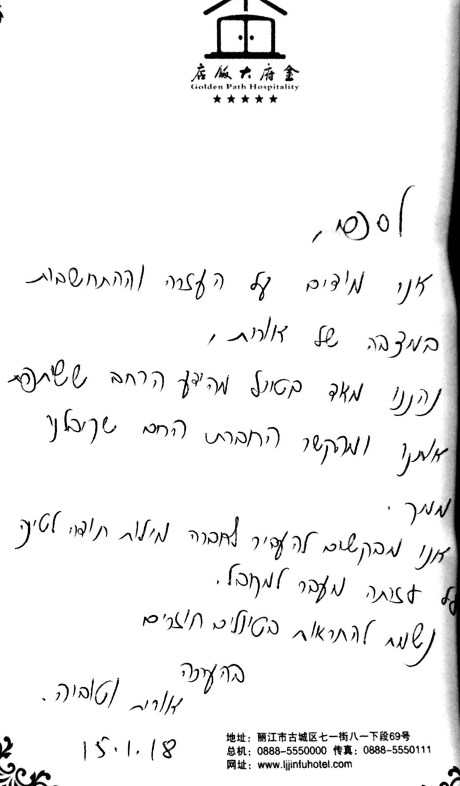 店飯大府金
Golden Path Hospitality
אנו מודים על העזרה וההתחשבות
במצבה של אורית,
נהננו מאד בטיול מהידע הרחב ששיתפת
אותנו ומהקשר החברתי החם שקיבלנו
ממך.
אנו מבקשים להעביר לחברה מילות תודה לטינה
על עזרתה מעבר למקובל.
נשמח להתראות בטיולים חוזרים
בהערכה
אורית וטוביה.
15.1.18
地址: 丽江市古城区七一街八一下段69号
总机: 0888-5550000 传真: 0888-5550111
网址: www.ljjinfuhotel.com